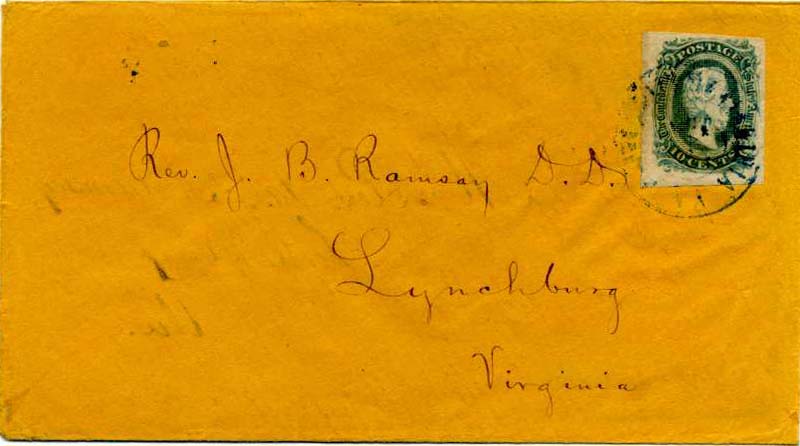 POSTAGE
The Confederate States of America
10 CENTS
Rev. J. B. Ramsay D.D.
Lynchburg
Virginia